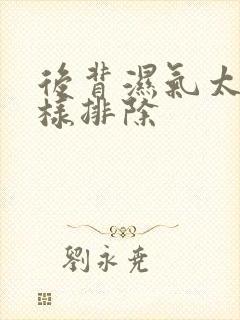 後背濕氣太
樣排除
劉永堯